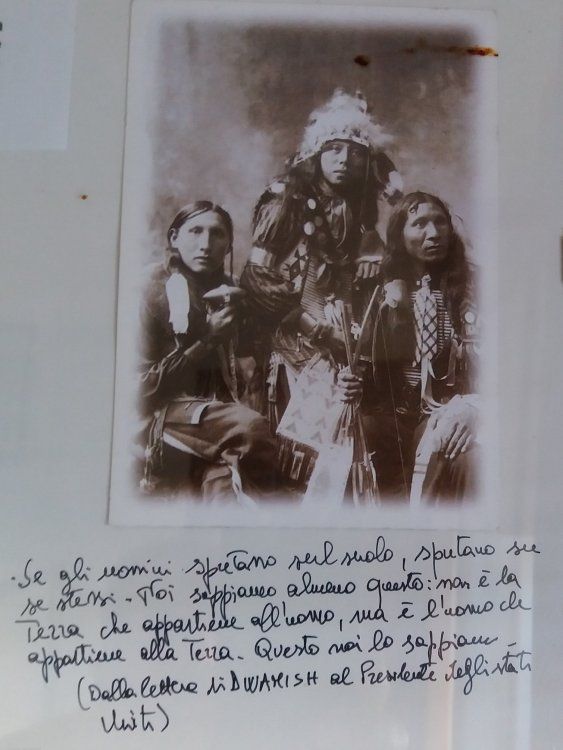 Se gli uomini sputano sul suolo, sputano su
se stessi. Noi sappiamo almeno questo: non è la
Terra che appartiene all'uomo, ma è l'uomo che
appartiene alla Terra. Questo noi lo sappiamo.
(Dalla lettera di DWAMISH al Presidente degli stati
Uniti)